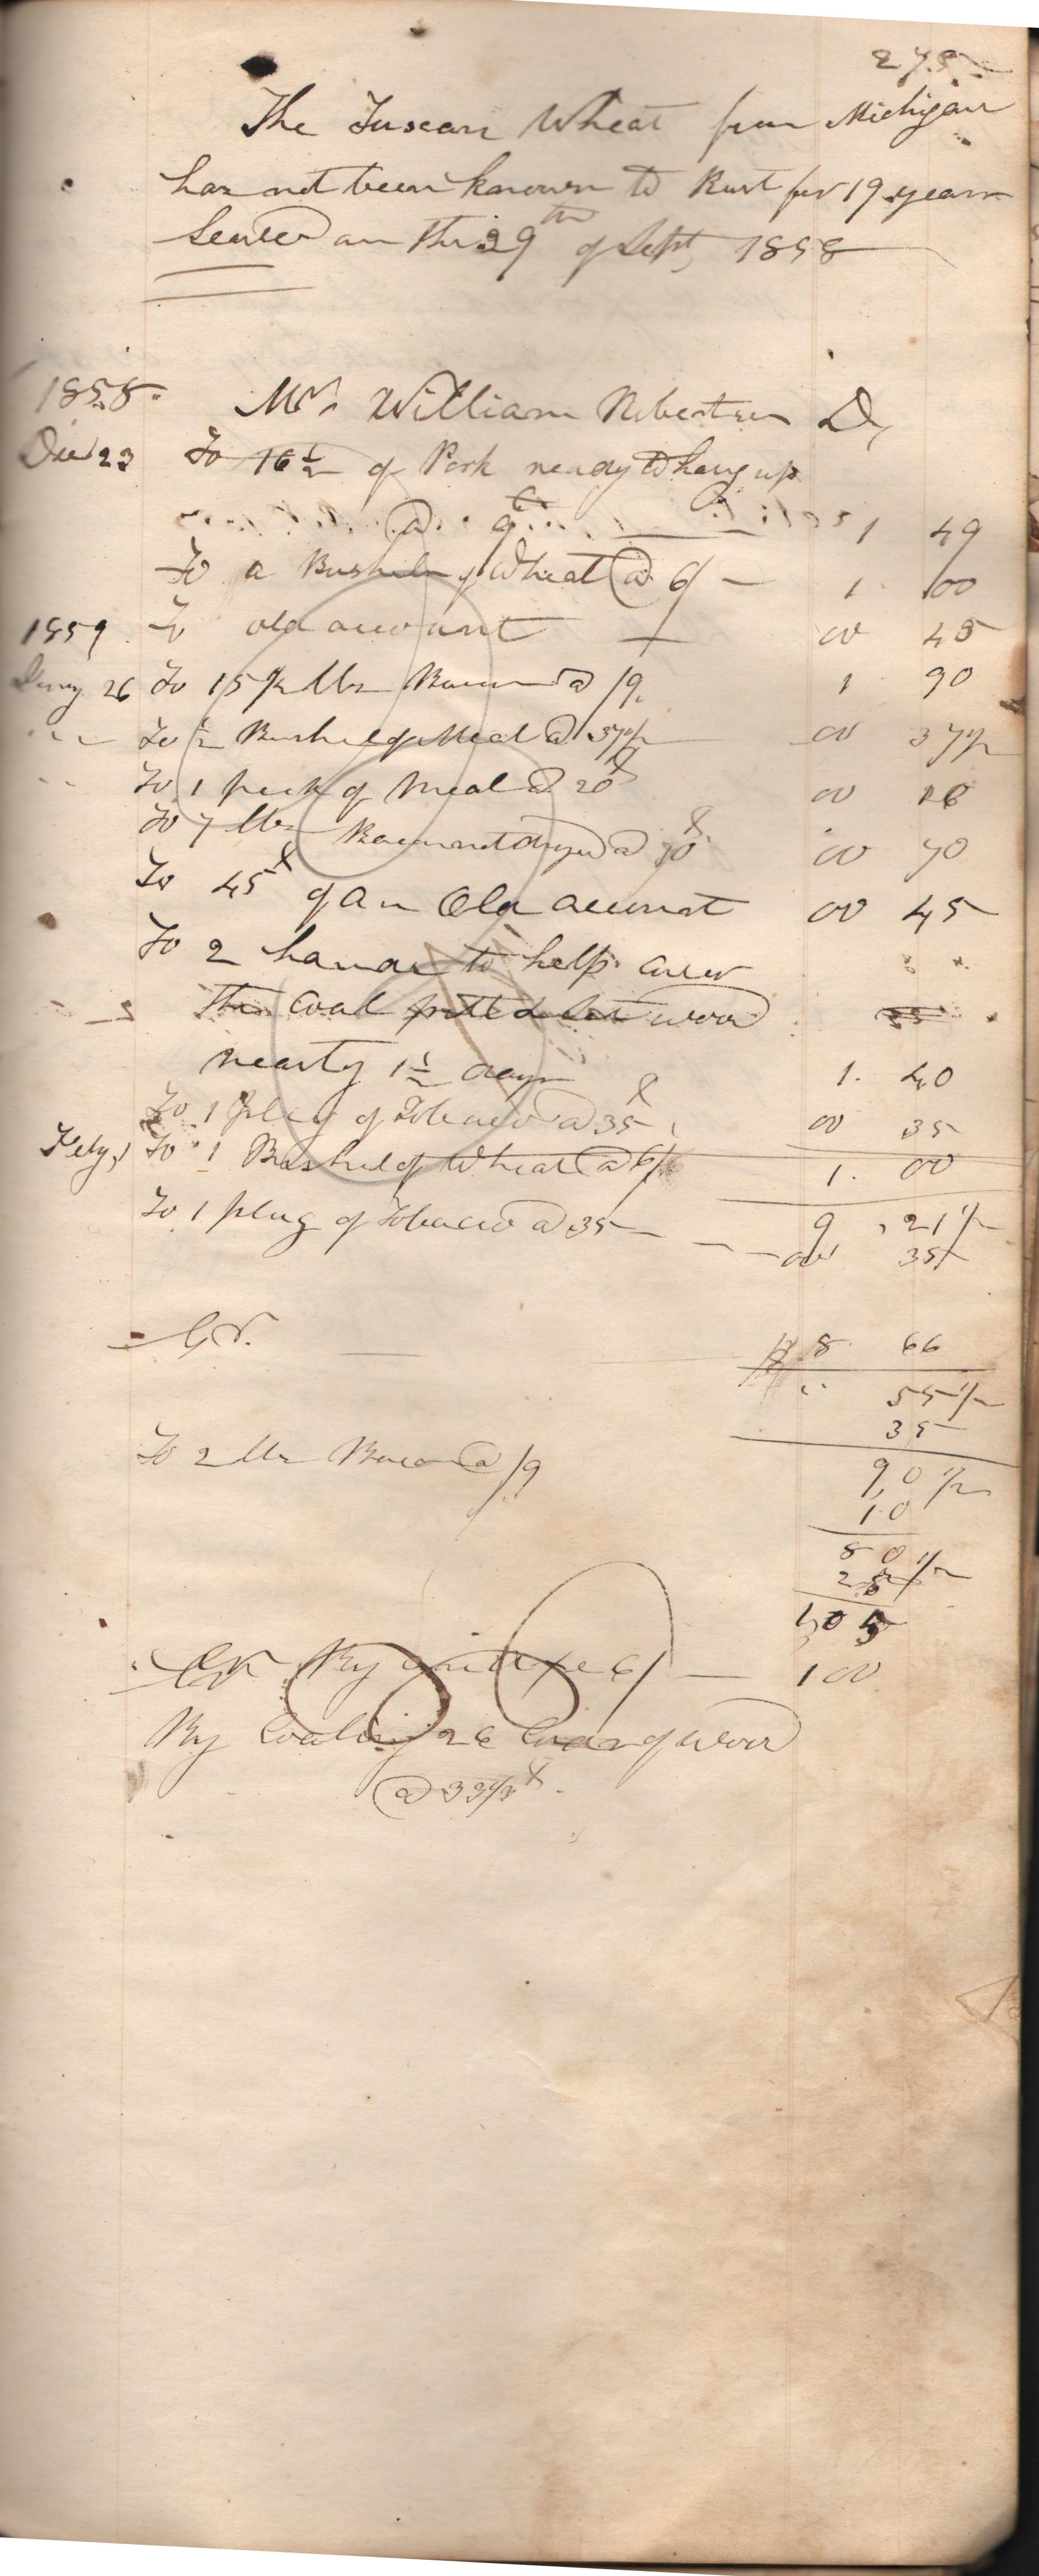 275
The Tuscan Wheat from Michigan
has not been known to Rust for 19 years
Seeded on this 29th of Sept, 1858
1858. Mr. William Robertson Dr,
Dec 23 To 16 1/2 of Pork ready to hang up
@ 9c 1 49
To a Bushel of Wheat @ 6/ 1. 00
1859 To old account 00 45
Jany 26 To 15 1/2 lbs Bacon @ /9 1 90
To 1/2 Bushel of Meal @ 37 1/2 00 37 1/2
To 1 peck of Meal @ 20 00
To 7 lbs Bacon not dryed @ 10 00 70
To 45 of an Old account 00 45
To 2 hands to help cover
the Coal pitt & set wood
nearly 1 1/2 days 1. 40
To 1 plug of Tobacco @ 35 00 35
Feby, 1 To 1 Bushel of Wheat @ 6/ 1. 00
9, 21 1/2
To 1 plug of Tobacco @ 35 00 35
Cr. 8 66
55 1/2
35
To 2 lbs Bacon @ /9 90 1/2
10
80 1/2
25
1,05
Cr By 6/ 100
By Coaling 26 of wood
@ 33 1/3